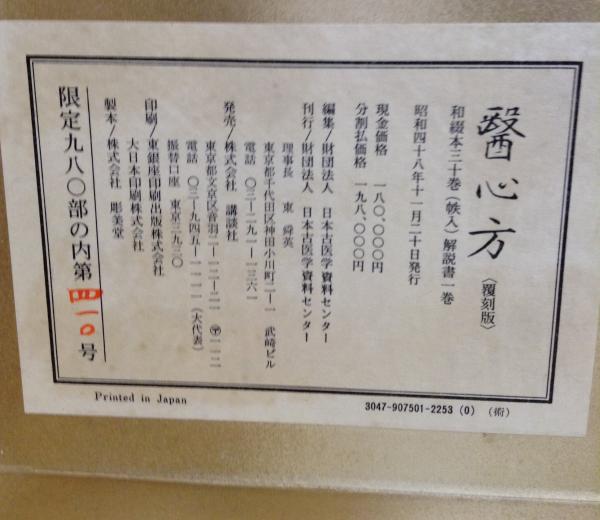 醫心方〈覆刻版〉
和綴本三十巻(帙入)解説書一巻
昭和四十八年十一月二十日発行
現金価格 一八〇,〇〇〇円
分割払価格 一九八,〇〇〇円
編集/財団法人 日本古医学資料センター
刊行/財団法人 日本古医学資料センター
理事長 東 舜英
東京都千代田区神田小川町二ー一 武崎ビル
電話 〇三ー二九一ー一三六一
発売/株式会社 講談社
東京都文京区音羽二ー一二ー二一 〒一一二
電話 〇三ー九四五ー一一一一(大代表)
振替口座 東京三九三〇
印刷/東銀座印刷出版株式会社
大日本印刷株式会社
製本/株式会社 彫美堂
限定九八〇部の内第四一〇号
Printed in Japan
3047-907501-2253 (0) (術)